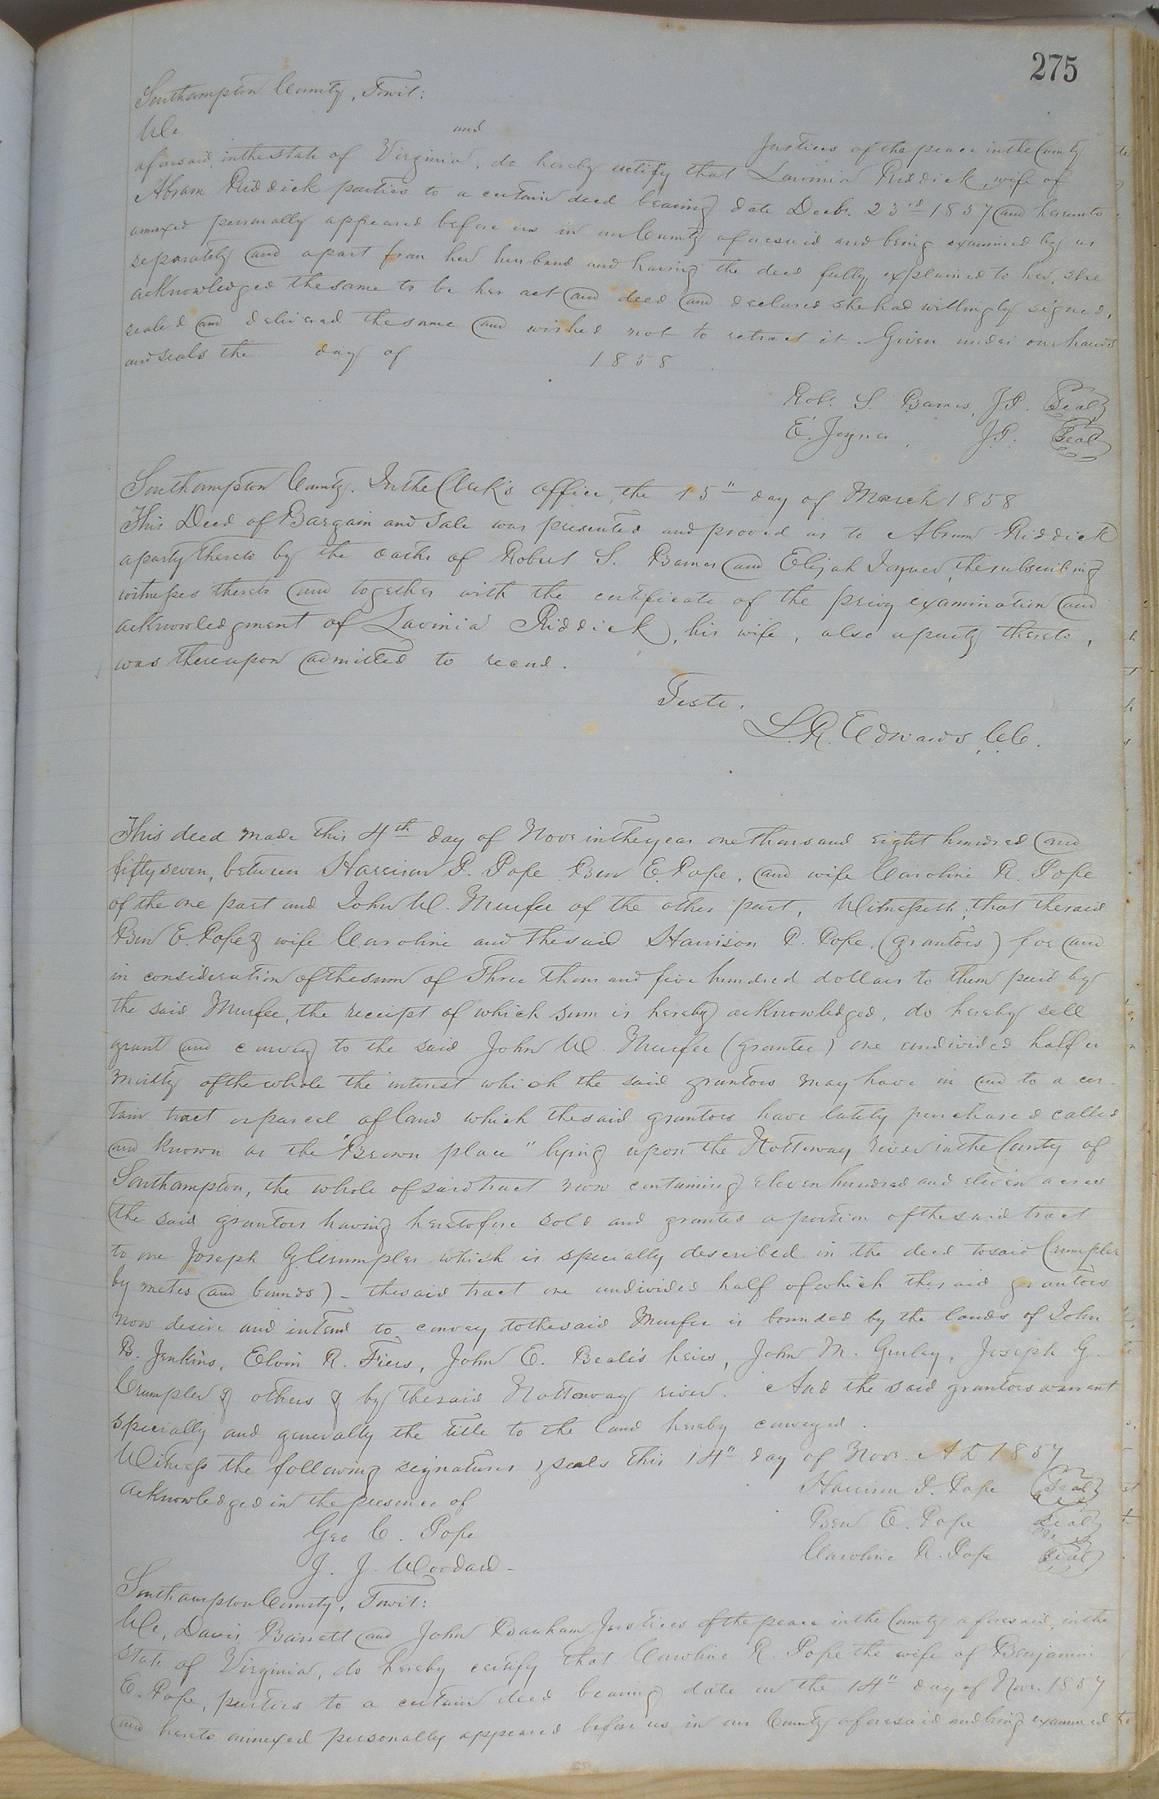 275
Southampton County, Towit:
We and Justices of the peace in the County
aforesaid in the state of Virginia, do hereby certify that Lavinia Riddick, wife of
Abram Riddick parties to a certain deed bearing date Decbr. 23rd 1857 and hereunto
annexed personally appeared before us in our County aforesaid and being examined by us
separately and apart from her husband and having the deed fully explained to her, she
acknowledged the same to be her act and deed and declared she had willingly signed,
sealed and delivered the same and wished not to retract it. Given under our hands
and seals the day of 1858
Rob. S. Barnes, JP. Seal
E. Joyner, JP. Seal
Southampton County. In the Clerk's office, the 15" day of March 1858
This Deed of Bargain and Sale was presented and proved as to Abram Riddick
a party thereto by the oaths of Robert S. Barnes and Elijah Joyner, the subscribing
witnesses thereto and together with the certificate of the privy examination and
acknowledgment of Lavinia Riddick, his wife, also a party thereto,
was thereupon admitted to record.
Teste.
L. R. Edwards C.C.
This deed made this 4th day of Novr in the year one thousand eight hundred and
fifty seven, between Harrison P. Pope Ben E. Pope, and wife Caroline R. Pope
of the one part and John W. Murfee of the other part, Witnesseth, that the said
Ben E. Pope & wife Caroline and the said Harrison P. Pope, (grantors) for and
in consideration of the sum of Three thousand five hundred dollars to them paid by
the said Murfee, the receipt of which sum is hereby acknowledged, do hereby sell
grant and convey to the said John W. Murfee (grantee) one undivided half or
moitty of the whole the interest which the said grantors may have in and to a cer-
tain tract or parcel of land which the said grantors have lately purchased called
and known as the "Brown place" lying upon the Nottoway river in the County of
Southampton, the whole of said tract now containing eleven hundred and eleven acres
(the said grantors having heretofore sold and granted a portion of the said tract
to one Joseph G Crumpler which is specially described in the deed to said Crumpler
by metes and bounds) - the said tract one undivided half of which the said grantors
now desire and intend to convey to the said Murfee is bounded by the lands of John
B. Jenkins, Elvin R. Fiers, John E. Beale's heirs, John M. Gurley, Joseph G.
Crumpler & others & by the said Nottoway river. And the said grantors warrant
specially and generally the title to the land hereby conveyed.
Witness the following signatures & seals this 14" day of Novr. A D 1857
Acknowledged in the presence of Harrison P. Pope Seal
Geo C. Pope Ben E. Pope Seal
J. J. Woodard - Caroline R. Pope Seal
Southampton County, Towit:
We, Davis Barrett and John Branham Justices of the peace in the County aforesaid, in the
State of Virginia, do hereby certify that Caroline R. Pope the wife of Benjamin
E. Pope, parties to a certain deed bearing date on the 14" day of Nov. 1857
and hereto annexed personally appeared before us in our County aforesaid and being examined